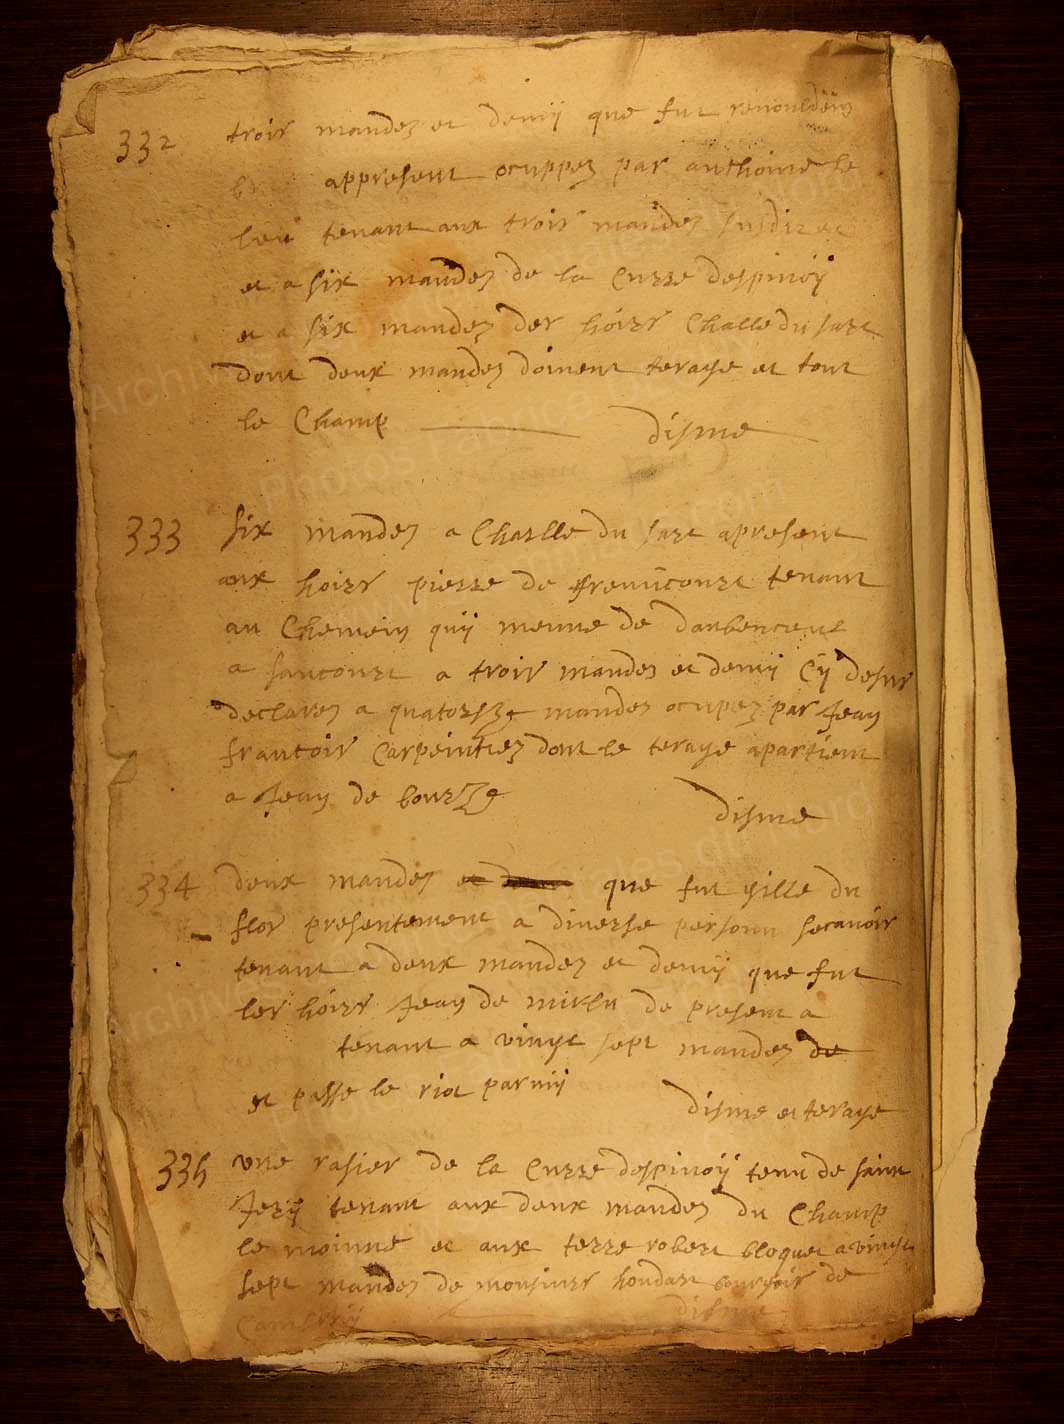 332 trois mandez et demÿ que fut
appresent ocuppez par anthoine le
leu tenant aux trois mandez susdit et
et a six mandez de la Curre despinoÿ
et a six mandez des hoirs Challe du sart
dont deux mandez doivent terage et tout
le Champ disme
333 six mandez a Charlle du sart apresent
aux hoirs pierre de fremicourt tenant
au Chemein quÿ menne de daubenceul
a sancourt a trois mandez et demÿ Cÿ desus
declarez a quatorsze mandez ocupez par Jean
francois Carpeintiez dont le terage apartient
a Jean de
disme
334 deux mandez et que fut gille du
flos presentement a diverse personn scavoir
tenant a deux mandez et demÿ que fut
les hoirs Jean de de present a
tenant a vingt sept mandez de
et passe le riot parmÿ
disme et terage
335 une rasier de la Curre despinoÿ tenu de saint
Jerÿ tenant aux deux mandez du Champ
le moinne et aux terre robert bloquet a vingt
sept mandez de monsieur houdart bourgois de
Cambraÿ disme
Archives départementales du Nord
Photos Fabrice